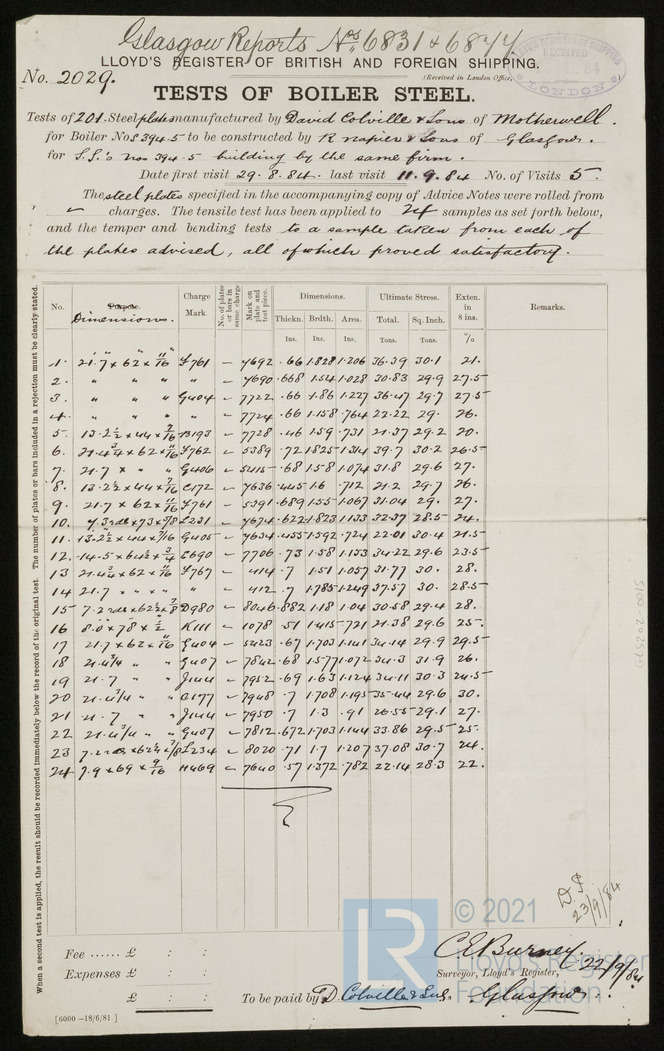 Glasgow Reports Nos. 6831 & 6844
LLOYD'S REGISTER OF BRITISH AND FOREIGN SHIPPING.
No. 2029.
(Received in London Office,
RECEIVED
LONDON
TESTS OF BOILER STEEL.
Tests of 201 Steel plates manufactured by David Colville & Sons of Motherwell.
for Boiler Nos 394.5 to be constructed by R napier & Sons of Glasgow.
for S.S.'s nos 394.5 building by the same firm.
Date first visit 29.8.84. last visit 11.9.84 No. of Visits 5.
The steel plates specified in the accompanying copy of Advice Notes were rolled from
charges. The tensile test has been applied to 24 samples as set forth below,
and the temper and bending tests to a sample taken from each of
the plates advised, all of which proved satisfactory.
When a second test is applied, the result should be recorded immediately below the record of the original test. The number of plates or bars included in a rejection must be clearly stated.
No. Dimensions. Charge Mark. No. of plates or bars in same charge Mark on plate and test piece. Dimensions. Ultimate Stress. Exten. in 8 ins. Remarks.
Thickn. Brdth. Area. Total. Sq. Inch.
Ins. Ins. Tons. Tons. %
1. 21.7 x 62 x 11/16 £761 – 7692 .66 1.828 1.206 36.39 30.1 21.
2. " " " " – 7690 .668 1.54 1.028 30.83 29.9 27.5
3. " " " G404 – 7722 .66 1.86 1.227 36.47 29.7 27.5
4. " " " " – 7724 .66 1.158 .764 22.22 29. 26.
5. 13.2½ x 44 x 7/16 B193 – 7728 .46 1.59 .731 21.37 29.2 20.
6. 21.4¾ x 62 x 11/16 £762 – 5389 .72 1.825 1.314 39.7 30.2 26.5
7. 21.7 x " " G406 – 5415 .68 1.58 1.074 31.8 29.6 27.
8. 13.2½ x 44 x 7/16 C172 – 7636 .445 1.6 .712 21.2 29.7 26.
9. 21.7 x 62 x 11/16 £761 – 5391 .689 1.55 1.067 31.04 29. 27.
10. 7.3 rds x 73 x 5/8 L231 – 7674 .622 1.823 1.133 32.37 28.5 24.
11. 13.2½ x 44 x 7/16 G405 – 7634 .455 1.592 .724 22.01 30.4 21.5
12. 14.5 x 64½ x ¾ C690 – 7706 .73 1.58 1.153 34.22 29.6 23.5
13 21.4¾ x 62 x 11/16 £767 – 414 .7 1.51 1.057 31.77 30. 28.
14 21.7 x " " " – 412 .7 1.785 1.249 37.57 30. 28.5
15 7.2 rds x 62½ x 7/8 D980 – 8046 .882 1.18 1.04 30.58 29.4 28.
16 8.0 x 78 x ½ K111 – 1078 .51 1.415 .721 21.38 29.6 25.
17 21.7 x 62 x 11/16 G404 – 5423 .67 1.703 1.141 34.14 29.9 29.5
18 21.4¾ " " G407 – 7842 .68 1.577 1.072 34.3 31.9 26.
19 21.7 " " J144 – 7952 .69 1.63 1.124 34.11 30.3 24.5
20 21.4¾ " " C177 – 7948 .7 1.708 1.195 35.44 29.6 30.
21 21.7 " " J144 – 7950 .7 1.3 .91 26.55 29.1 27.
22 21.4¾ " " G407 – 7812 .672 1.703 1.144 33.86 29.5 25.
23 7.2 rds x 62½ x 7/8 L234 – 8020 .71 1.7 1.207 37.08 30.7 24.
24 7.9 x 69 x 9/16 H469 – 7640 .57 1.372 .782 22.14 28.3 22.
23/9/84
© 2021
LR
Lloyd's Register Foundation
Fee ...... £ : :
Expenses £ : :
£ : :
C.E. Burney. 22/9/84
Surveyor, Lloyd's Register,
To be paid by D Colville & Sons. Glasgow.
[6000—18/6/81]